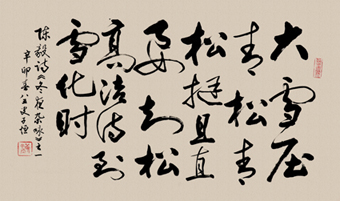 大雪压
青松青
松挺且直
要知松
高洁待到
雪化时
陈毅诗《冬夜杂咏》之一
辛卯